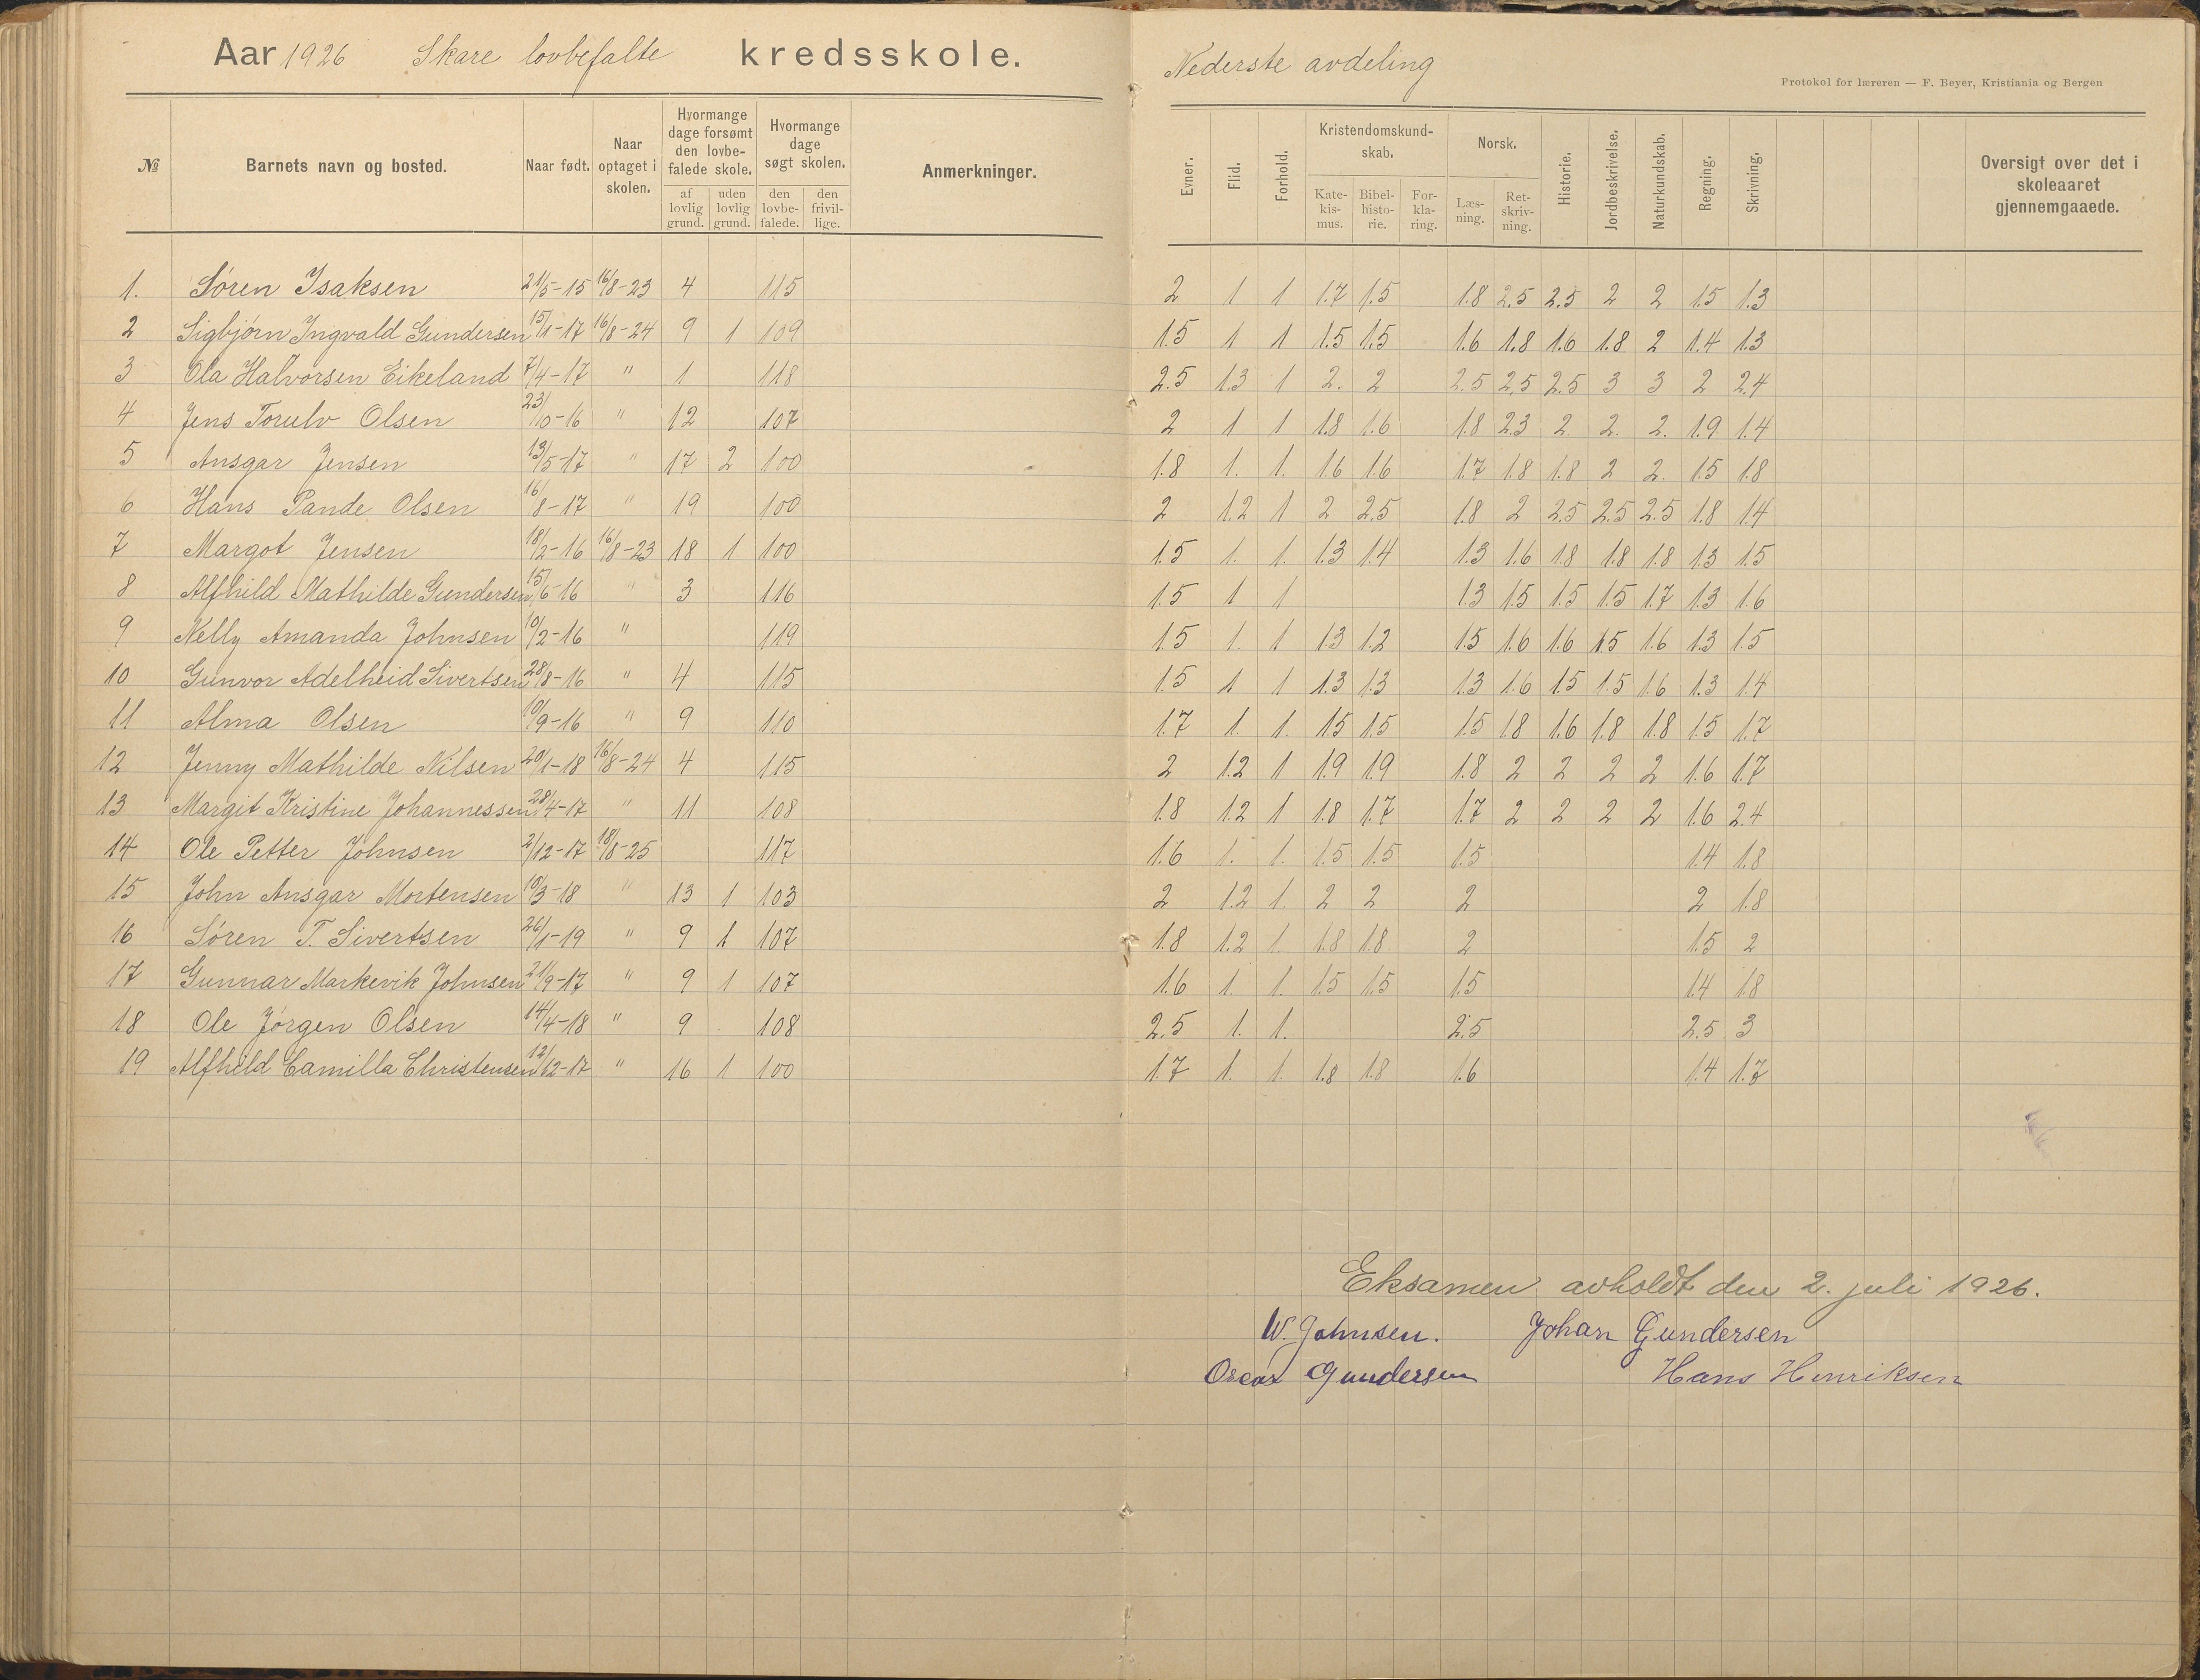 Aar 1926 Skare lovbefalte kredsskole. Nederste avdeling
Protokol for læreren — F. Beyer, Kristiania og Bergen
№ Barnets navn og bosted. Naar født. Naar optaget i skolen. Hvormange dage forsømt den lovbefalede skole. af lovlig grund. uden lovlig grund. Hvormange dage søgt skolen. den lovbefalede. den frivillige. Anmerkninger. Evner. Flid. Forhold. Kristendomskundskab. Katekismus. Bibelhistorie. Forklaring. Norsk. Læsning. Retskrivning. Historie. Jordbeskrivelse. Naturkundskab. Regning. Skrivning. Oversigt over det i skoleaaret gjennemgaaede.
1. Søren Isaksen 21/5-15 16/8-23 4 115 2 1 1 1.7 1.5 1.8 2.5 2.5 2 2 1.5 1.3
2 Sigbjørn Ingvald Gundersen 15/1-17 16/8-24 9 1 109 1.5 1 1 1.5 1.5 1.6 1.8 1.6 1.8 2 1.4 1.3
3 Ola Halvorsen Eikeland 7/4-17 " 1 118 2.5 1.3 1 2. 2 2.5 2.5 2.5 3 3 2 2.4
4 Jens Torulv Olsen 23/10-16 " 12 107 2 1 1 1.8 1.6 1.8 2.3 2 2. 2. 1.9 1.4
5 Ansgar Jensen 13/5-17 " 17 2 100 1.8 1. 1. 1.6 1.6 1.7 1.8 1.8 2 2. 1.5 1.8
6 Hans Pande Olsen 16/8-17 " 19 100 2 1.2 1 2 2.5 1.8 2 2.5 2.5 2.5 1.8 1.4
7 Margot Jensen 18/2-16 16/8-23 18 1 100 1.5 1. 1. 1.3 1.4 1.3 1.6 1.8 1.8 1.8 1.3 1.5
8 Alfhild Mathilde Gundersen 15/6-16 " 3 116 1.5 1 1 1.3 1.5 1.5 1.5 1.7 1.3 1.6
9 Nelly Amanda Johnsen 10/2-16 " 119 1.5 1. 1 1.3 1.2 1.5 1.6 1.6 1.5 1.6 1.3 1.5
10 Gunvor Adelheid Sivertsen 28/8-16 " 4 115 1.5 1 1 1.3 1.3 1.3 1.6 1.5 1.5 1.6 1.3 1.4
11 Alma Olsen 10/9-16 " 9 110 1.7 1. 1. 1.5 1.5 1.5 1.8 1.6 1.8 1.8 1.5 1.7
12 Jenny Mathilde Nilsen 20/1-18 16/8-24 4 115 2 1.2 1 1.9 1.9 1.8 2 2 2 2 1.6 1.7
13 Margit Kristine Johannessen 28/4-17 " 11 108 1.8 1.2 1 1.8 1.7 1.7 2 2 2 2 1.6 2.4
14 Ole Petter Johnsen 2/12-17 18/8-25 117 1.6 1. 1. 1.5 1.5 1.5 1.4 1.8
15 John Ansgar Mortensen 15/3-18 " 13 1 103 2 1.2 1. 2 2 2 2 1.8
16 Søren T. Sivertsen 26/1-19 " 9 1 107 1.8 1.2 1 1.8 1.8 2 1.5 2
17 Gunnar Markevik Johnsen 21/9-17 " 9 1 107 1.6 1. 1. 1.5 1.5 1.5 1.4 1.8
18 Ole Jørgen Olsen 14/4-18 " 9 108 2.5 1. 1. 2.5 2.5 3
19 Alfhild Camilla Christensen 12/12-17 " 16 1 100 1.7 1. 1. 1.8 1.8 1.6 1.4 1.7
Eksamen avholdt den 2. juli 1926.
W. Johnsen. Johan Gundersen
Oscar Gundersen Hans Henriksen